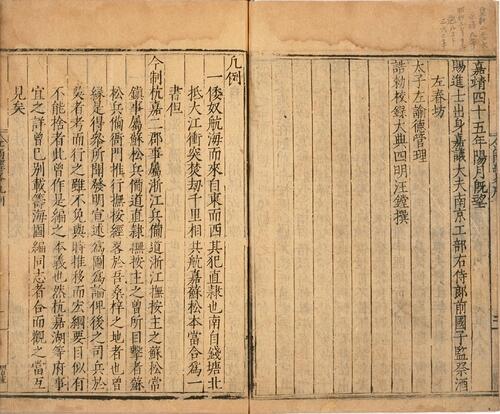 嘉靖四十五年陽月既望
賜進士出身嘉議大夫南京工部右侍郎前國子監祭酒
左春坊
太子左諭德管理
誥勅校錄大典四明汪鏜撰
凡例
一倭奴航海而來自東而西其犯直隸也南自錢塘北
抵大江衝突焚刼千里相共杭嘉蘇松本當合爲一
書但
今制杭嘉二郡事屬浙江兵備道浙江撫按主之蘇松常
鎮事屬蘇松兵備道直隸撫按主之曾所目擊者蘇
松兵備衙門推行撫按經畧於吾桑梓之地者也曾
緣是得叅所聞發明宣述爲圖爲論俾後之司兵於
吳者考而行之雖不免與時推移而宏綱要目似有
不能捨者此曾作是編之本義也然杭嘉湖等府事
宜之詳曾已別載籌海圖編同志者合而觀之當互
見矣